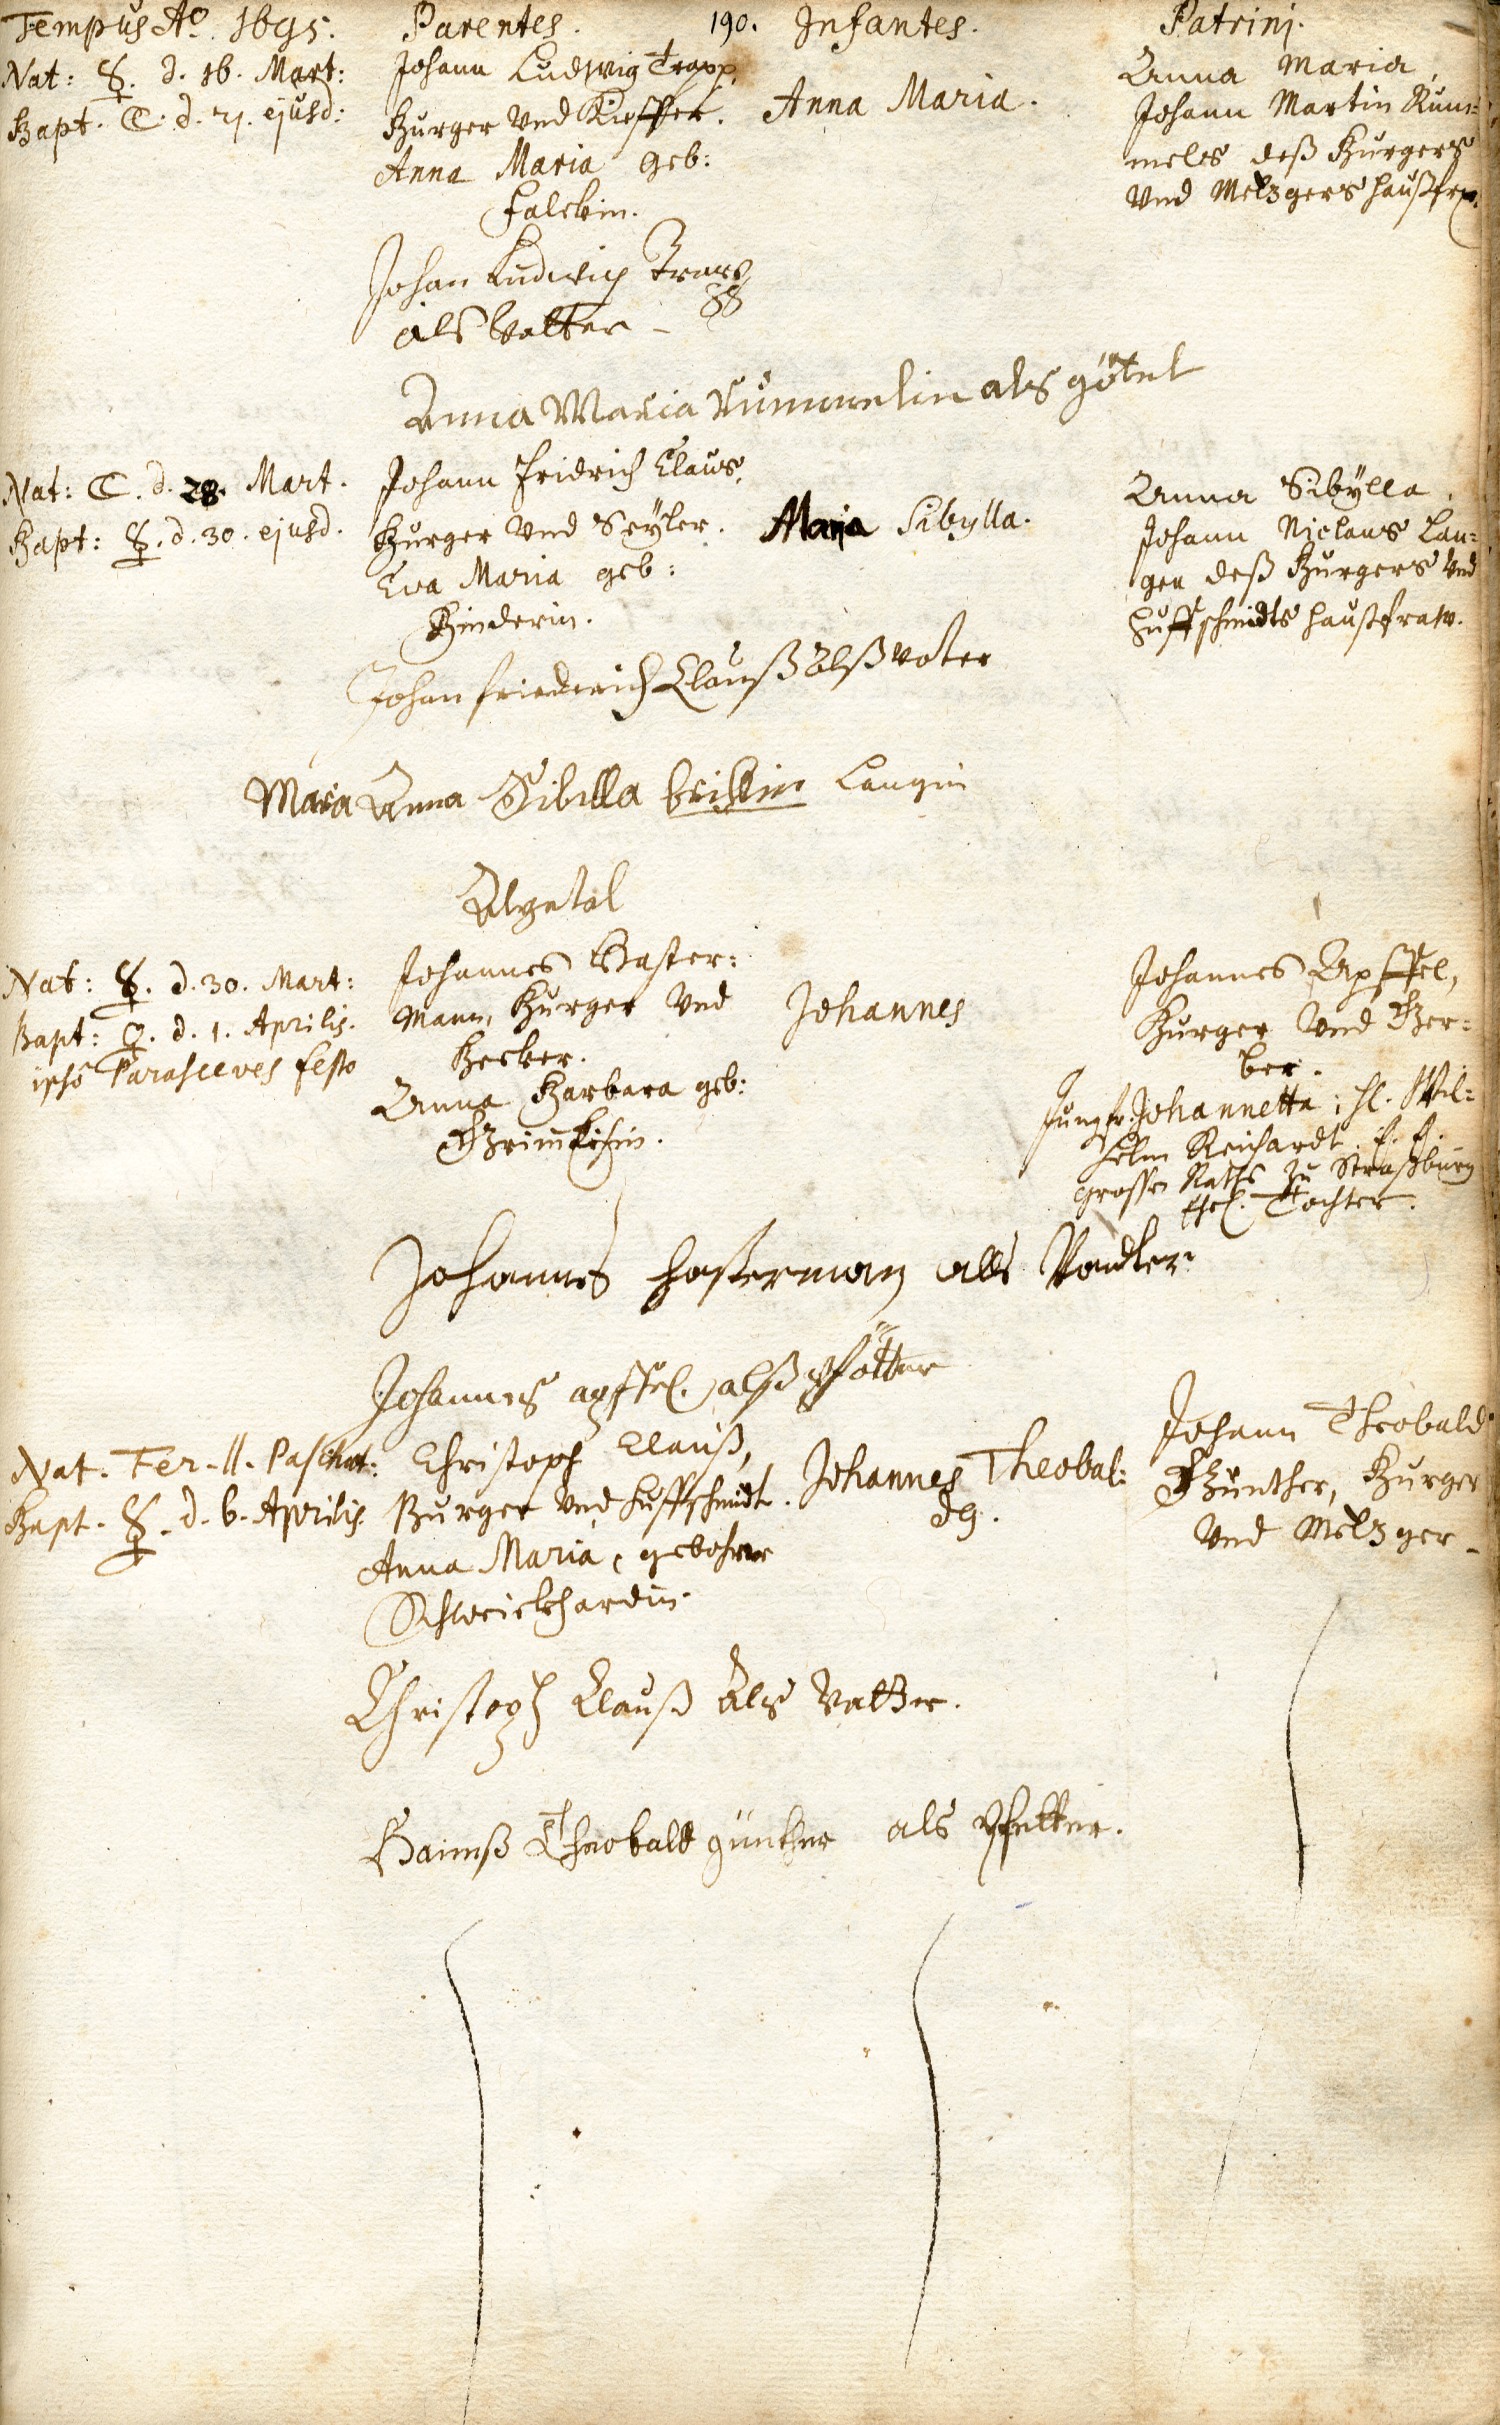 Tempus Ao. 1695. Parentes. 190. Infantes. Patrini.
Nat: ☿. d. 16. Mart:
Bapt. ☾. d. 21. ejusd:
Johann Ludwig Trapp,
Burger Vnd Kieffer.
Anna Maria geb:
Falckin.
Anna Maria.
Anna Maria,
Johann Martin Rum=
meles deß Burgers
Vnd Metzgers Haußfr.
Johan Ludwig
als Vatter
Anna Maria Rummelin als götel
Nat: ☾. d. 28. Mart.
Bapt: ☿. d. 30. ejusd.
Johann Fridrich Claus,
Burger Vnd Seyler.
Eva Maria geb:
Binderin.
Maria Sibylla.
Anna Sibÿlla,
Johann Niclaus Lan=
gen deß Burgers Vnd
Huffschmidts Haußfraw.
Johan friederich Clauß Alß vater
Maria Anna Sibilla Langin
Nat: ☿. d. 30. Mart:
Bapt: ♀. d. 1. Aprilis.
ipso Parasceves festo
Johannes Haster=
mann, Burger Vnd
Becker.
Anna Barbara geb:
Johannes
Johannes Apffel,
Burger Vnd Ger=
ber.
Jungfr. Johannetta, H. Wil=
helm Reichardt
grossen Raths Zu Straßburg
Ehel. Tochter.
Johannes Hasterman als Vadter
Johannes apffel. alß Pfötter
Nat. Fer. II. Paschat:
Bapt. ☿. d. 6. Aprilis.
Christoph Clauß,
Burger Vnd Huffschmidt.
Anna Maria, gebohrne
Schweickhardin.
Johannes Theobal:
dg.
Johann Theobald
Günther, Burger
Vnd Metzger.
Christoph Clauß Als Vatter.
Hannß Theobald günther als Pfetter.